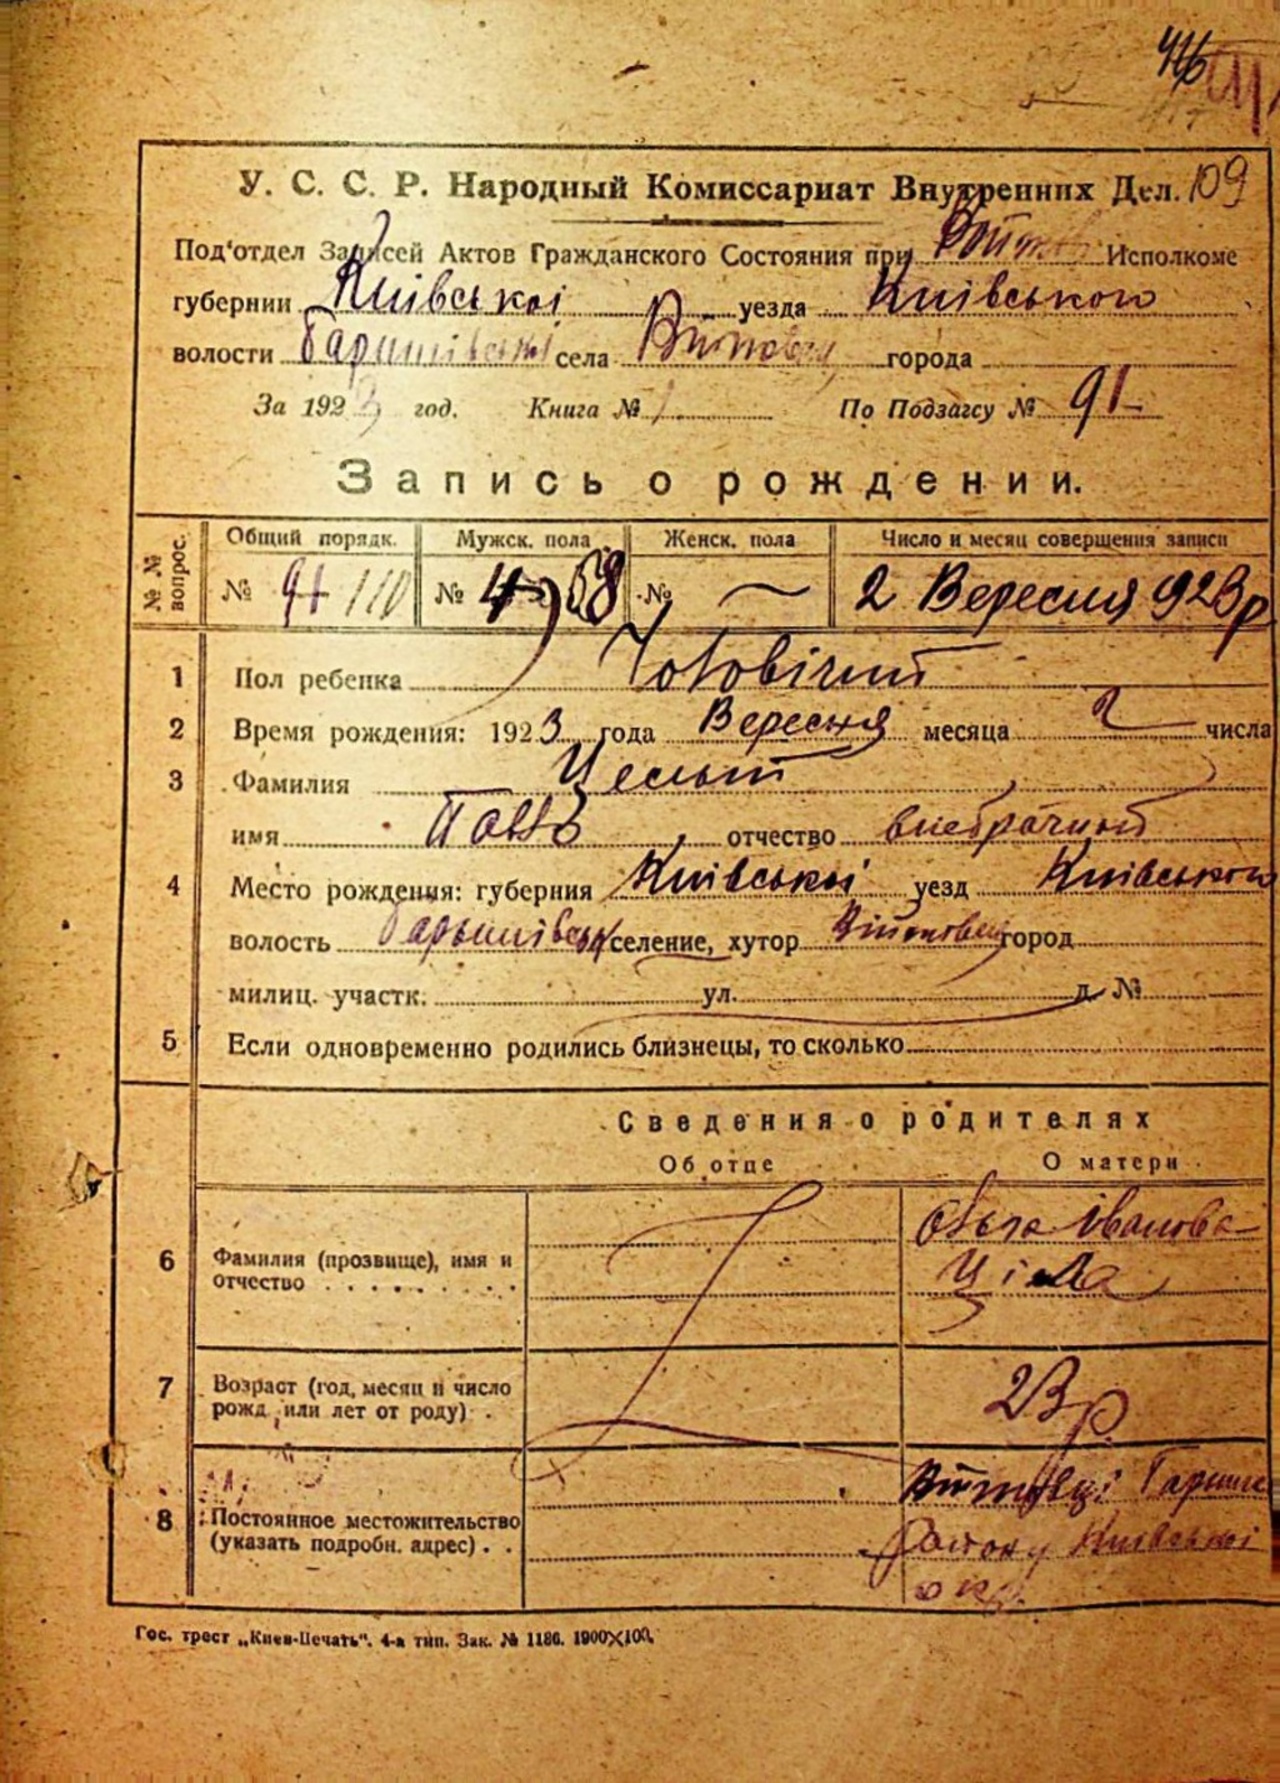 416
У. С. С. Р. Народный Комиссариат Внутренних Дел. 109
Под'отдел Записей Актов Гражданского Состояния при Исполкоме
губернии Київської уезда Київського
волости Баришівської села города
За 1923 год. Книга № 1 По Подзагсу № 91
Запись о рождении.
№ № вопрос. Общий порядк. Мужск. пола Женск. пола Число и месяц совершения записи
№ 91 110 № 58 № — 2 Вересня 923 р
1 Пол ребенка Чоловічий
2 Время рождения: 1923 года Вересня месяца 2 числа
3 Фамилия
имя отчество внебрачный
4 Место рождения: губерния Київської уезд Київського
волость Баришівськ селение, хутор город
милиц. участк. ул. д. №
5 Если одновременно родились близнецы, то сколько
Сведения о родителях
Об отце О матери
6 Фамилия (прозвище), имя и отчество Ольга Іванова
Ціла
7 Возраст (год, месяц и число рожд. или лет от роду) 23 р.
8 Постоянное местожительство (указать подробн. адрес) Війтовці Бариш
Району Київської
окр.
Гос. трест „Киев-Печать". 4-а тип. Зак. № 1186. 1900×100.